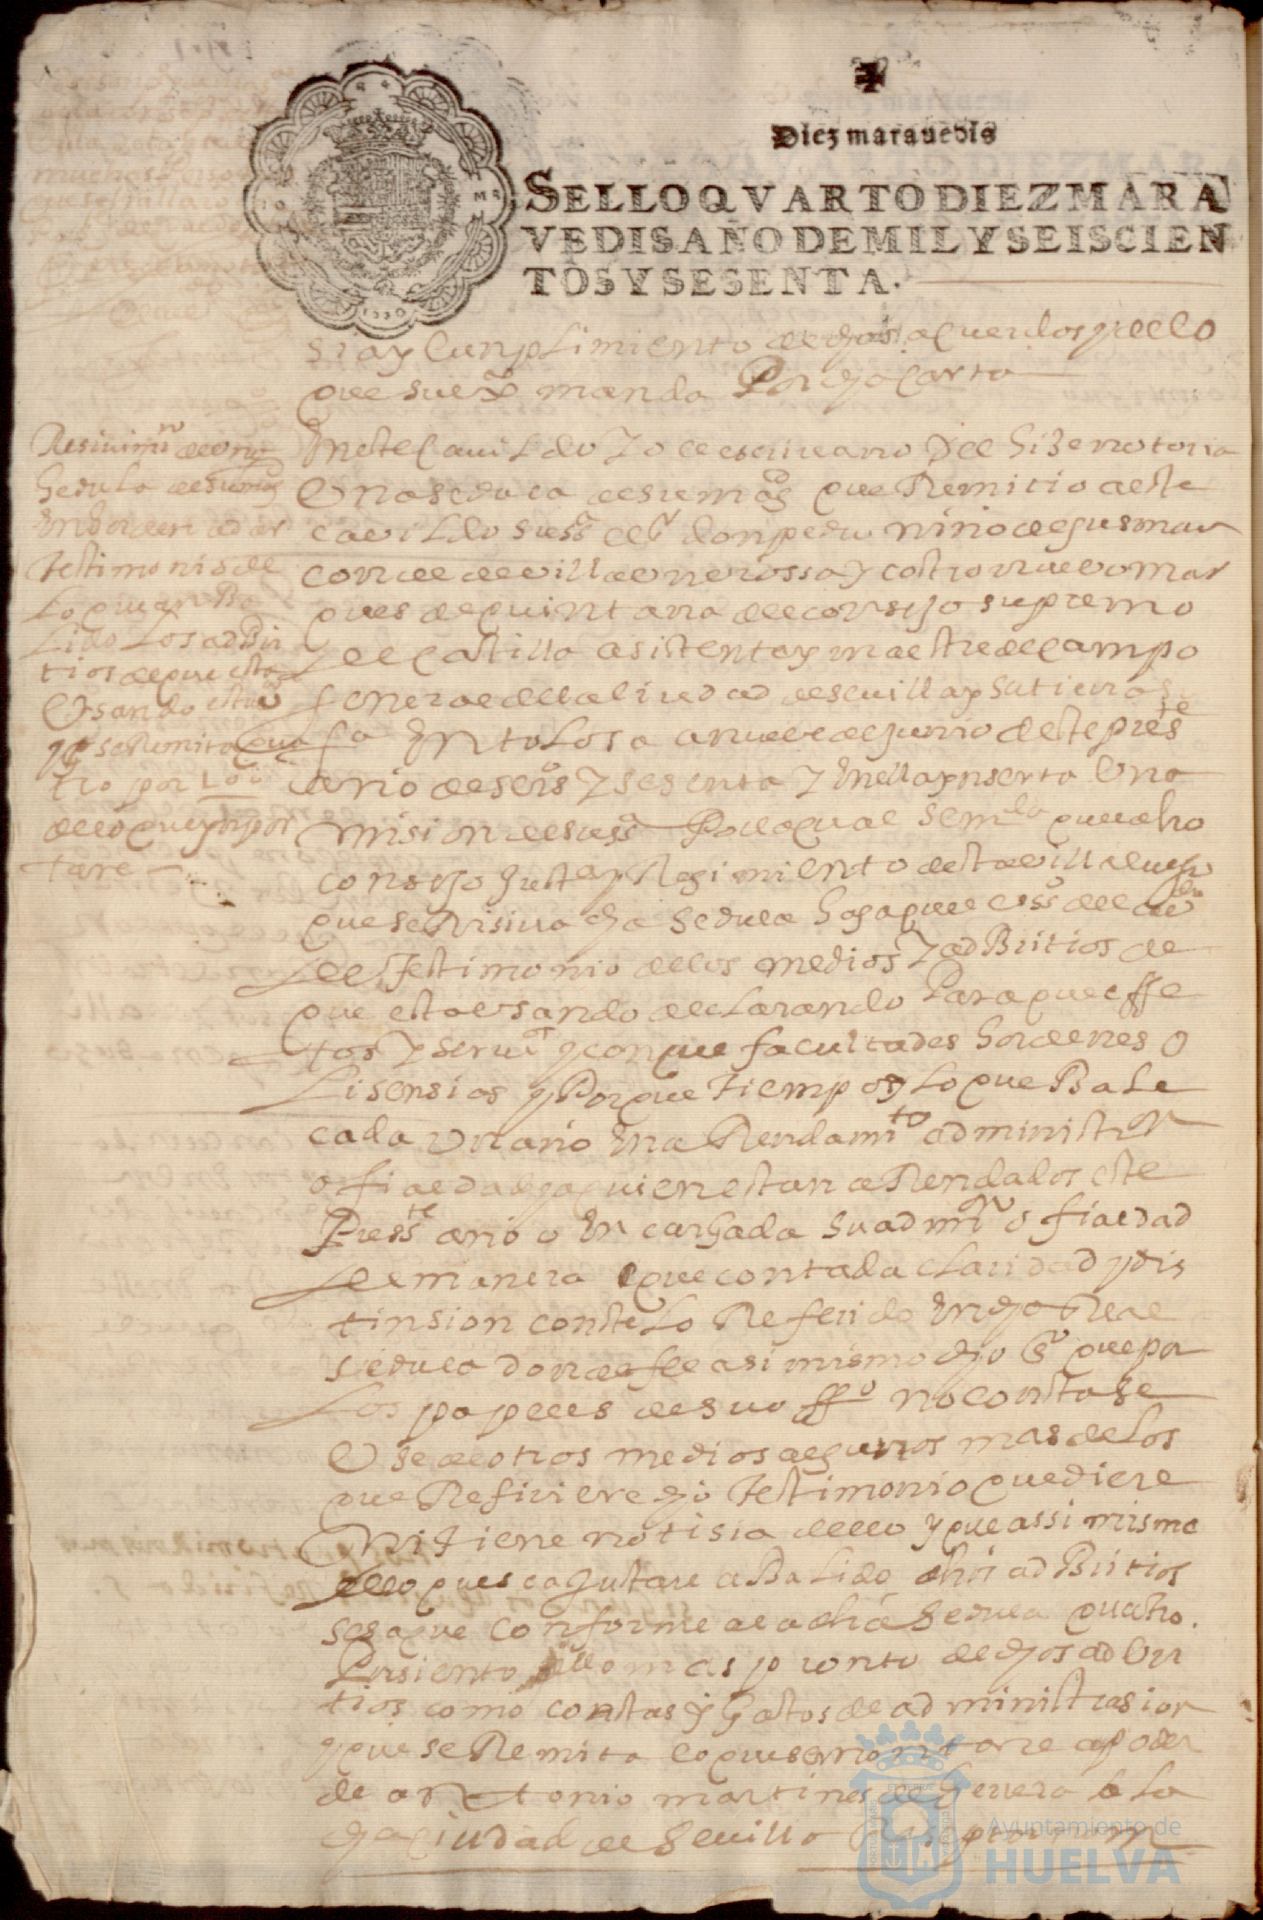 Diez maravedis
SELLO QVARTO DIEZ MARA
VEDIS AÑO DE MIL Y SEISCIEN
TOS Y SESENTA.
sia y cunplimiento de dhos aquerdos y de lo
que su exa manda Por dha carta
Resivimio de una
Zedula de su magd
En orden a dar
testimonio de
lo que an Ba
lido los adBi
trios de que esta
Usando esta va
y q se Remita
de lo que ynpor
tare
En este Cavildo Yo el escrivano Del hize notoria
Una sedula de su magd que Remitio a este
cavildo su ssa el sr don pedro niño de gusman
conde de villaunbrossa y castronuevo mar
ques de quintana del consejo supremo
de Castilla asistente y maestre de campo
General de la ciudad de sevilla y su tierra su
fa En tolosa a nueve de junio deste preste
año de seis Y sesenta Y En ella ynserta Una
mision de su ssa Por la qual se mda que el dho
consejo Justa y Regimiento desta villa luego
que se Resiva dha Sedula haga que el essno del
de Testimonio de los medios Y adBitrios de
que esta Usando declarando Para que effe
tos Y y con que facultades hordenes o
Lisensias y Por que tiempo y Lo que Bale
cada un año En aRendamto administron
o fialdad y a quien estan aRendados este
Presste año o En cargada su admon o fialdad
de manera que con toda claridad y dis
tinsion conste Lo Referido En dha Real
sedula donde fee asimismo dho sno que por
Los papeles de su offo no consta se
Use de otros medios algunos mas de Los
que Refiriere dho testimonio que diere
Ni tiene notisia dello y que assi mismo
de lo que se ajustare a Balido dhos adBitrios
se saque conforme a la dha Sedula quatro
Porsiento de lo mas pronto de dhos adBi
trios como costas y gastos de administrasion
y que se Remita lo que se montare a poder
de antonio martines de Herrera a la
dha Ciudad de Sevilla
Ayuntamiento de
HUELVA